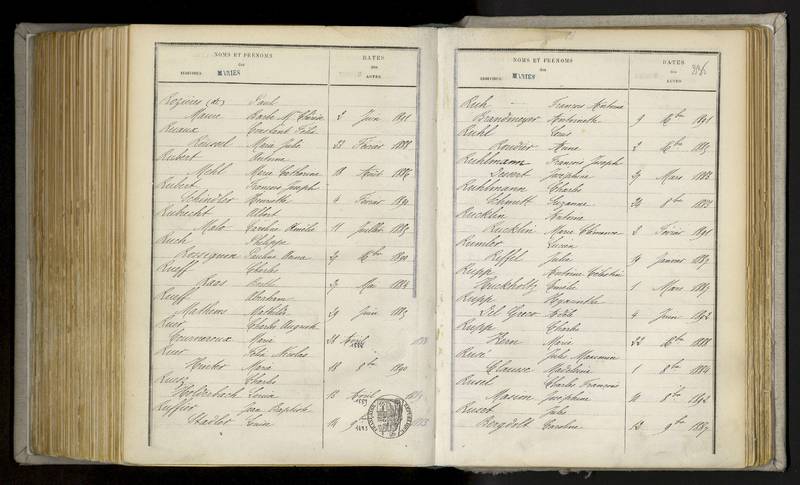 NOMS ET PRÉNOMS
des
INDIVIDUS MARIÉS
DATES
des
ACTES.
Rozières (de) Paul
Marie Barbe Mie Thérèse 2 Juin 1891
Ruaux Constant Félix
Roussel Marie Julie 22 Février 1888
Rubert Antoine
Mehl Marie Catherine 18 Août 1886
Rubert François Joseph
Schindler Henriette 4 Février 1890
Rubrecht Albert
Malo Caroline Amélie 11 Juillet 1885
Ruch Philippe
Rossignon Pauline Anna 27 Xbre 1890
Rueff Charles
Haas Berthe 27 Mai 1884
Rueff Abraham
Mathews Mathilde 29 Juin 1885
Ruer Charles Auguste
Cournaroux Marie 28 Avril 1888
Ruer Félix Nicolas
Hunker Maria 18 8bre 1890
Ruesz Charles
Holderbach Louisa 13 Avril 1889
Ruffier Jean Baptiste
Stadler Louise 14 9bre 1893
NOMS ET PRÉNOMS
des
INDIVIDUS MARIÉS
DATES
des
ACTES.
Ruh François Antoine
Brandmeyer Antoinette 9 Xbre 1891
Ruhl Louis
Roudier Anne 2 Xbre 1885
Ruhlmann François Joseph
Josephine 29 Mars 1887
Ruhlmann Charles
Schmitt Suzanne 24 8bre 1887
Rucklin Antoine
Rucklin Marie Clémence 2 Février 1891
Rumler Lucien
Riffel Julie 19 Janvier 1889
Rupp Antoine Célestin
Huckholtz Emélie 1 Mars 1889
Rupp Hyacinthe
Del Greco Adèle 4 Juin 1892
Rupp Charles
Kern Marie 22 Xbre 1888
Rusé Jules Maximin
Clausse Madeleine 1 8bre 1884
Rusel Charles François
Masson Joséphine 11 8bre 1892
Ruset Jules
Bergdolt Caroline 13 9bre 1889